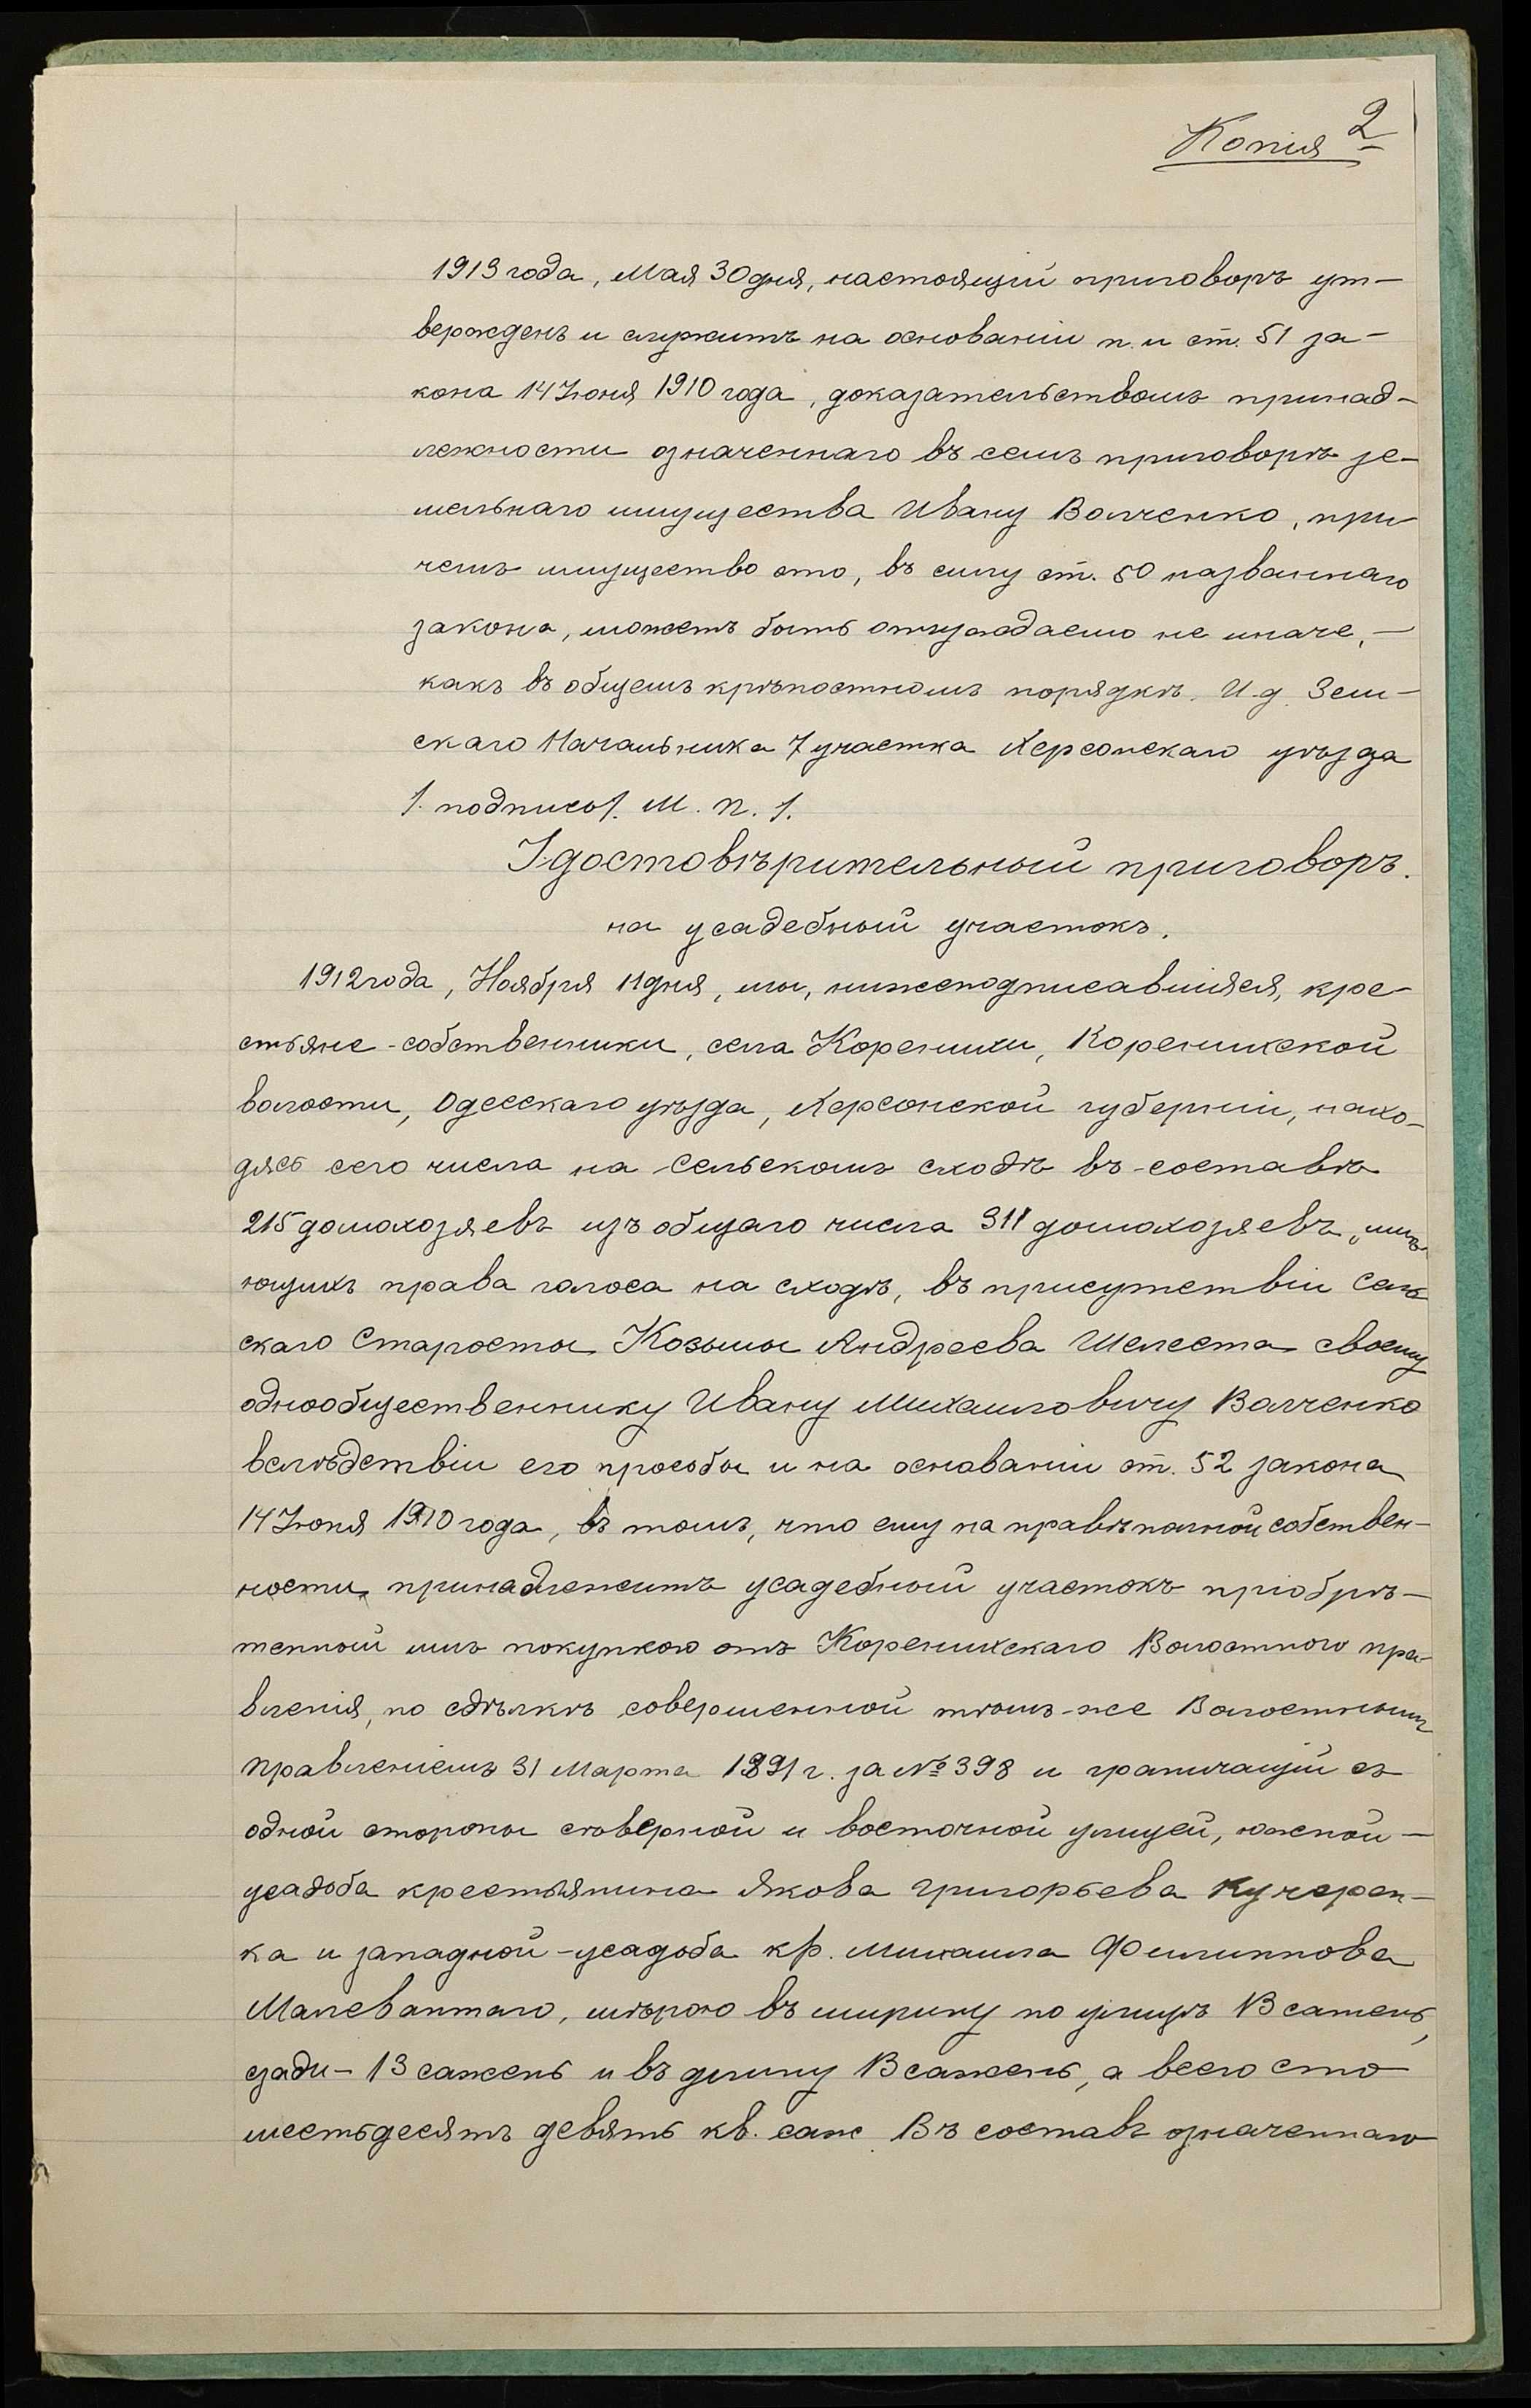 Копія 2
1913 года, Мая 30 дня, настоящій приговоръ ут-
вержденъ и служитъ на основаніи п. и ст. 51 за-
кона 14 Іюня 1910 года, доказательствомъ принад-
лежности означеннаго въ семъ приговорѣ зе-
мельнаго имущества Ивану Волченко, при
чемъ имущество это, въ силу ст. 50 названнаго
закона, можетъ быть отчуждаемо не иначе, —
какъ въ общемъ крѣпостномъ порядкѣ. И. д. Зем-
скаго Начальника 7 участка Херсонскаго уѣзда
/. подпись/. М. П. /.
Удостовѣрительный приговоръ.
на усадебный участокъ.
1912 года, Ноября 11 дня, мы, нижеподписавшіяся, кре-
стьяне-собственники, села Коренихи, Коренихской
волости, Одесскаго уѣзда, Херсонской губерніи, нахо-
дясь сего числа на Сельскомъ сходѣ въ составѣ
215 домохозяевъ изъ общаго числа 311 домохозяевъ, имѣ-
ющихъ права голоса на сходѣ, въ присутствіи Сель
скаго Старосты Козьмы Андреева Шелеста своему
однообщественнику Ивану Михайловичу Волченко
вслѣдствіи его просьбы и на основаніи ст. 52 закона
14 Іюня 1910 года, въ томъ, что ему на правѣ полной собствен-
ности принадлежитъ усадебный участокъ пріобрѣ-
тенный имъ покупкою отъ Коренихскаго Волостного пра-
вленія, по сдѣлкѣ совершенной тѣмъ-же Волостнымъ
Правленіемъ 31 Марта 1891 г. за № 398 и граничащій съ
одной стороны сѣверной и восточной улицей, южной —
усадьба крестьянина Якова Григорьева Кучерен-
ка и западной - усадьба кр. Михаила Филиппова
Малеваптаго, мѣрою въ ширину по улицѣ 13 сажень,
сзади - 13 сажень и въ длину 13 сажень, а всего сто
шестьдесятъ девять кв. саж. Въ составъ означеннаго